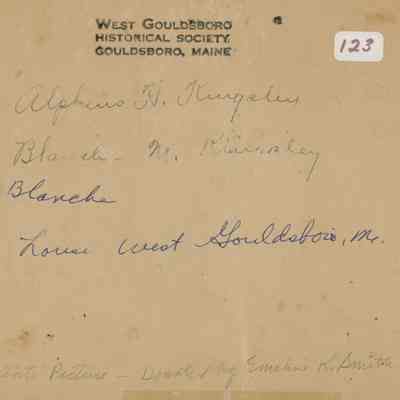 West Gouldsboro
Historical Society
Gouldsboro, Maine
123
Alpheus H. Kingsley
Blanch M. Kingsley
Blanche
House West Gouldsboro, Me.
Picture - Donated by Emeline K. Smith